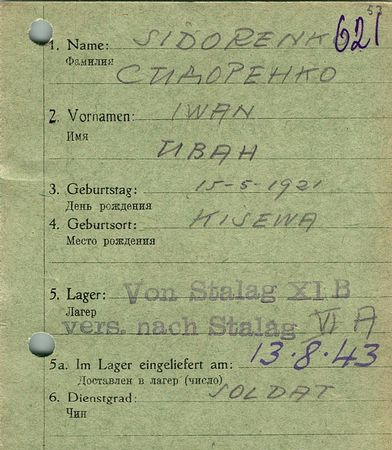 53
621
1. Name: SIDORENK
Фамилия СИДОРЕНКО
2. Vornamen: IWAN
Имя ИВАН
3. Geburtstag: 15-5-1921
День рождения
4. Geburtsort: KISEWA
Место рождения
5. Lager: Von Stalag XI B
Лагер
vers. nach Stalag VI A
5a. Im Lager eingeliefert am: 13.8.43
Доставлен в лагер (число)
6. Dienstgrad: SOLDAT
Чин